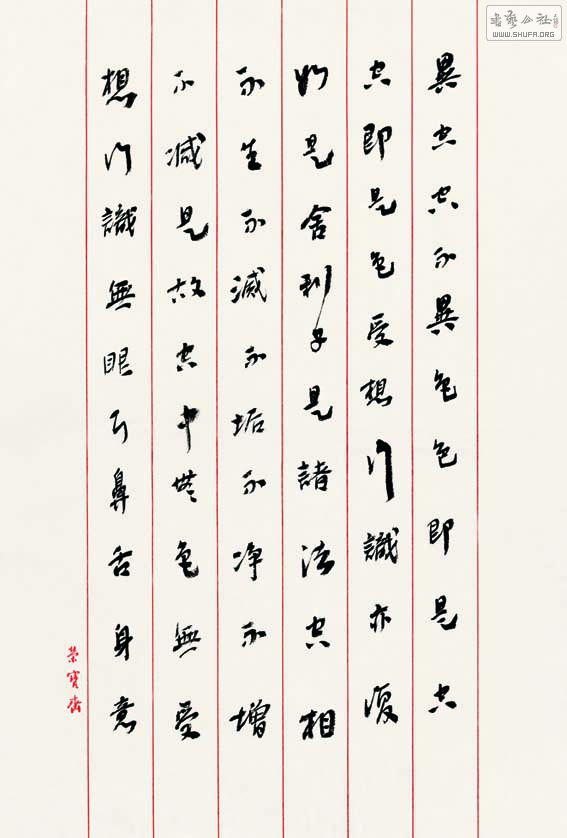 異空空不異色色即是空
空即是色受想行識亦復
如是舍利子是諸法空相
不生不滅不垢不净不增
不減是故空中無色無受
想行識無眼耳鼻舌身意
榮寶齋
書藝公社
WWW.SHUFA.ORG